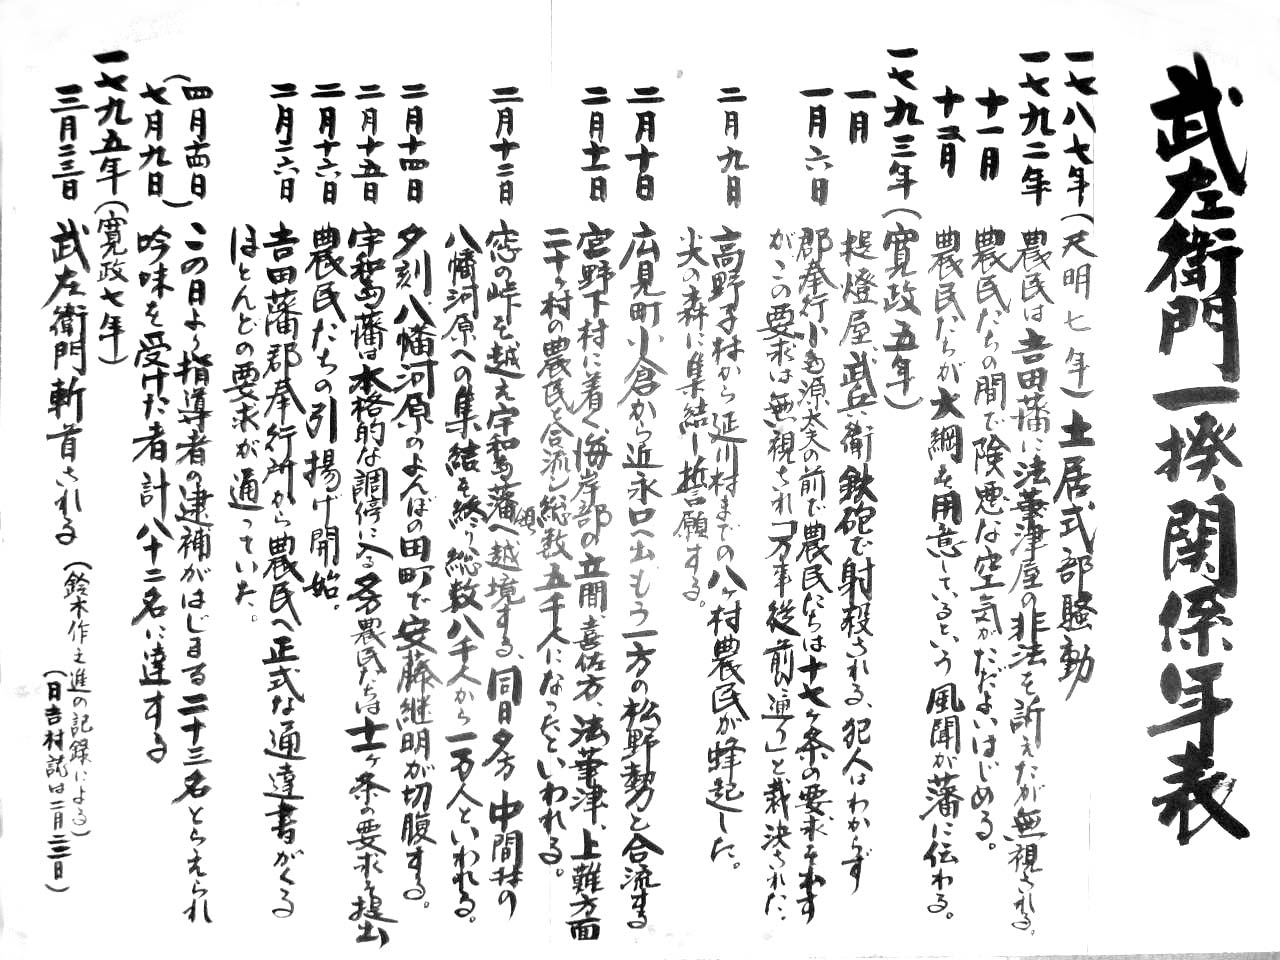 武左衛門一揆関係年表
一七八七年(天明七年)土居式部騒動
一七九二年 農民は吉田藩に法華津屋の非法を訴えたが無視される。
十一月 農民たちの間で険悪な空気がただよいはじめる。
十二月 農民たちが大綱を用意しているという風聞が藩に伝わる。
一七九三年(寛政五年)
一月 提燈屋、武兵衛鉄砲で射殺される、犯人はわからず
一月六日 郡奉行小島源太夫の前で農民たちは十七ヶ条の要求を出す
が、この要求は無視され「万事従前の通り」と裁決された。
二月九日 高野子村から延川村までの八ヶ村農民が蜂起した。
尖の森に集結し誓願する。
二月十日 広見町小倉から近永口へ出もう一方の松野勢と合流する
二月十一日 宮野下村に着く、海岸部の立間、喜佐方、法華津、上難方面
二十ヶ村の農民を合流し総数五千人になったといわれる。
二月十二日 窓の峠を越え宇和島藩領へ越境する、同日夕方 中間村の
八幡河原への集結を終り、総数八千人から一万人といわれる。
二月十四日 夕刻、八幡河原のよんばの田町で安藤継明が切腹する。
二月十五日 宇和島藩は本格的な調停に入る 農民たちは十一ヶ条の要求を提出
二月十六日 農民たちの引揚げ開始。
二月二六日 吉田藩郡奉行所から農民へ正式な通達書がくる
ほとんどの要求が通っていた。
(四月十四日) この日より指導者の逮捕がはじまる 二十三名とらえられ
七月九日 吟味を受けた者計八十二名に達する
一七九五年(寛政七年)
三月二三日 武左衛門斬首される (鈴木作之進の記録による)
(日吉村誌は二月二三日)